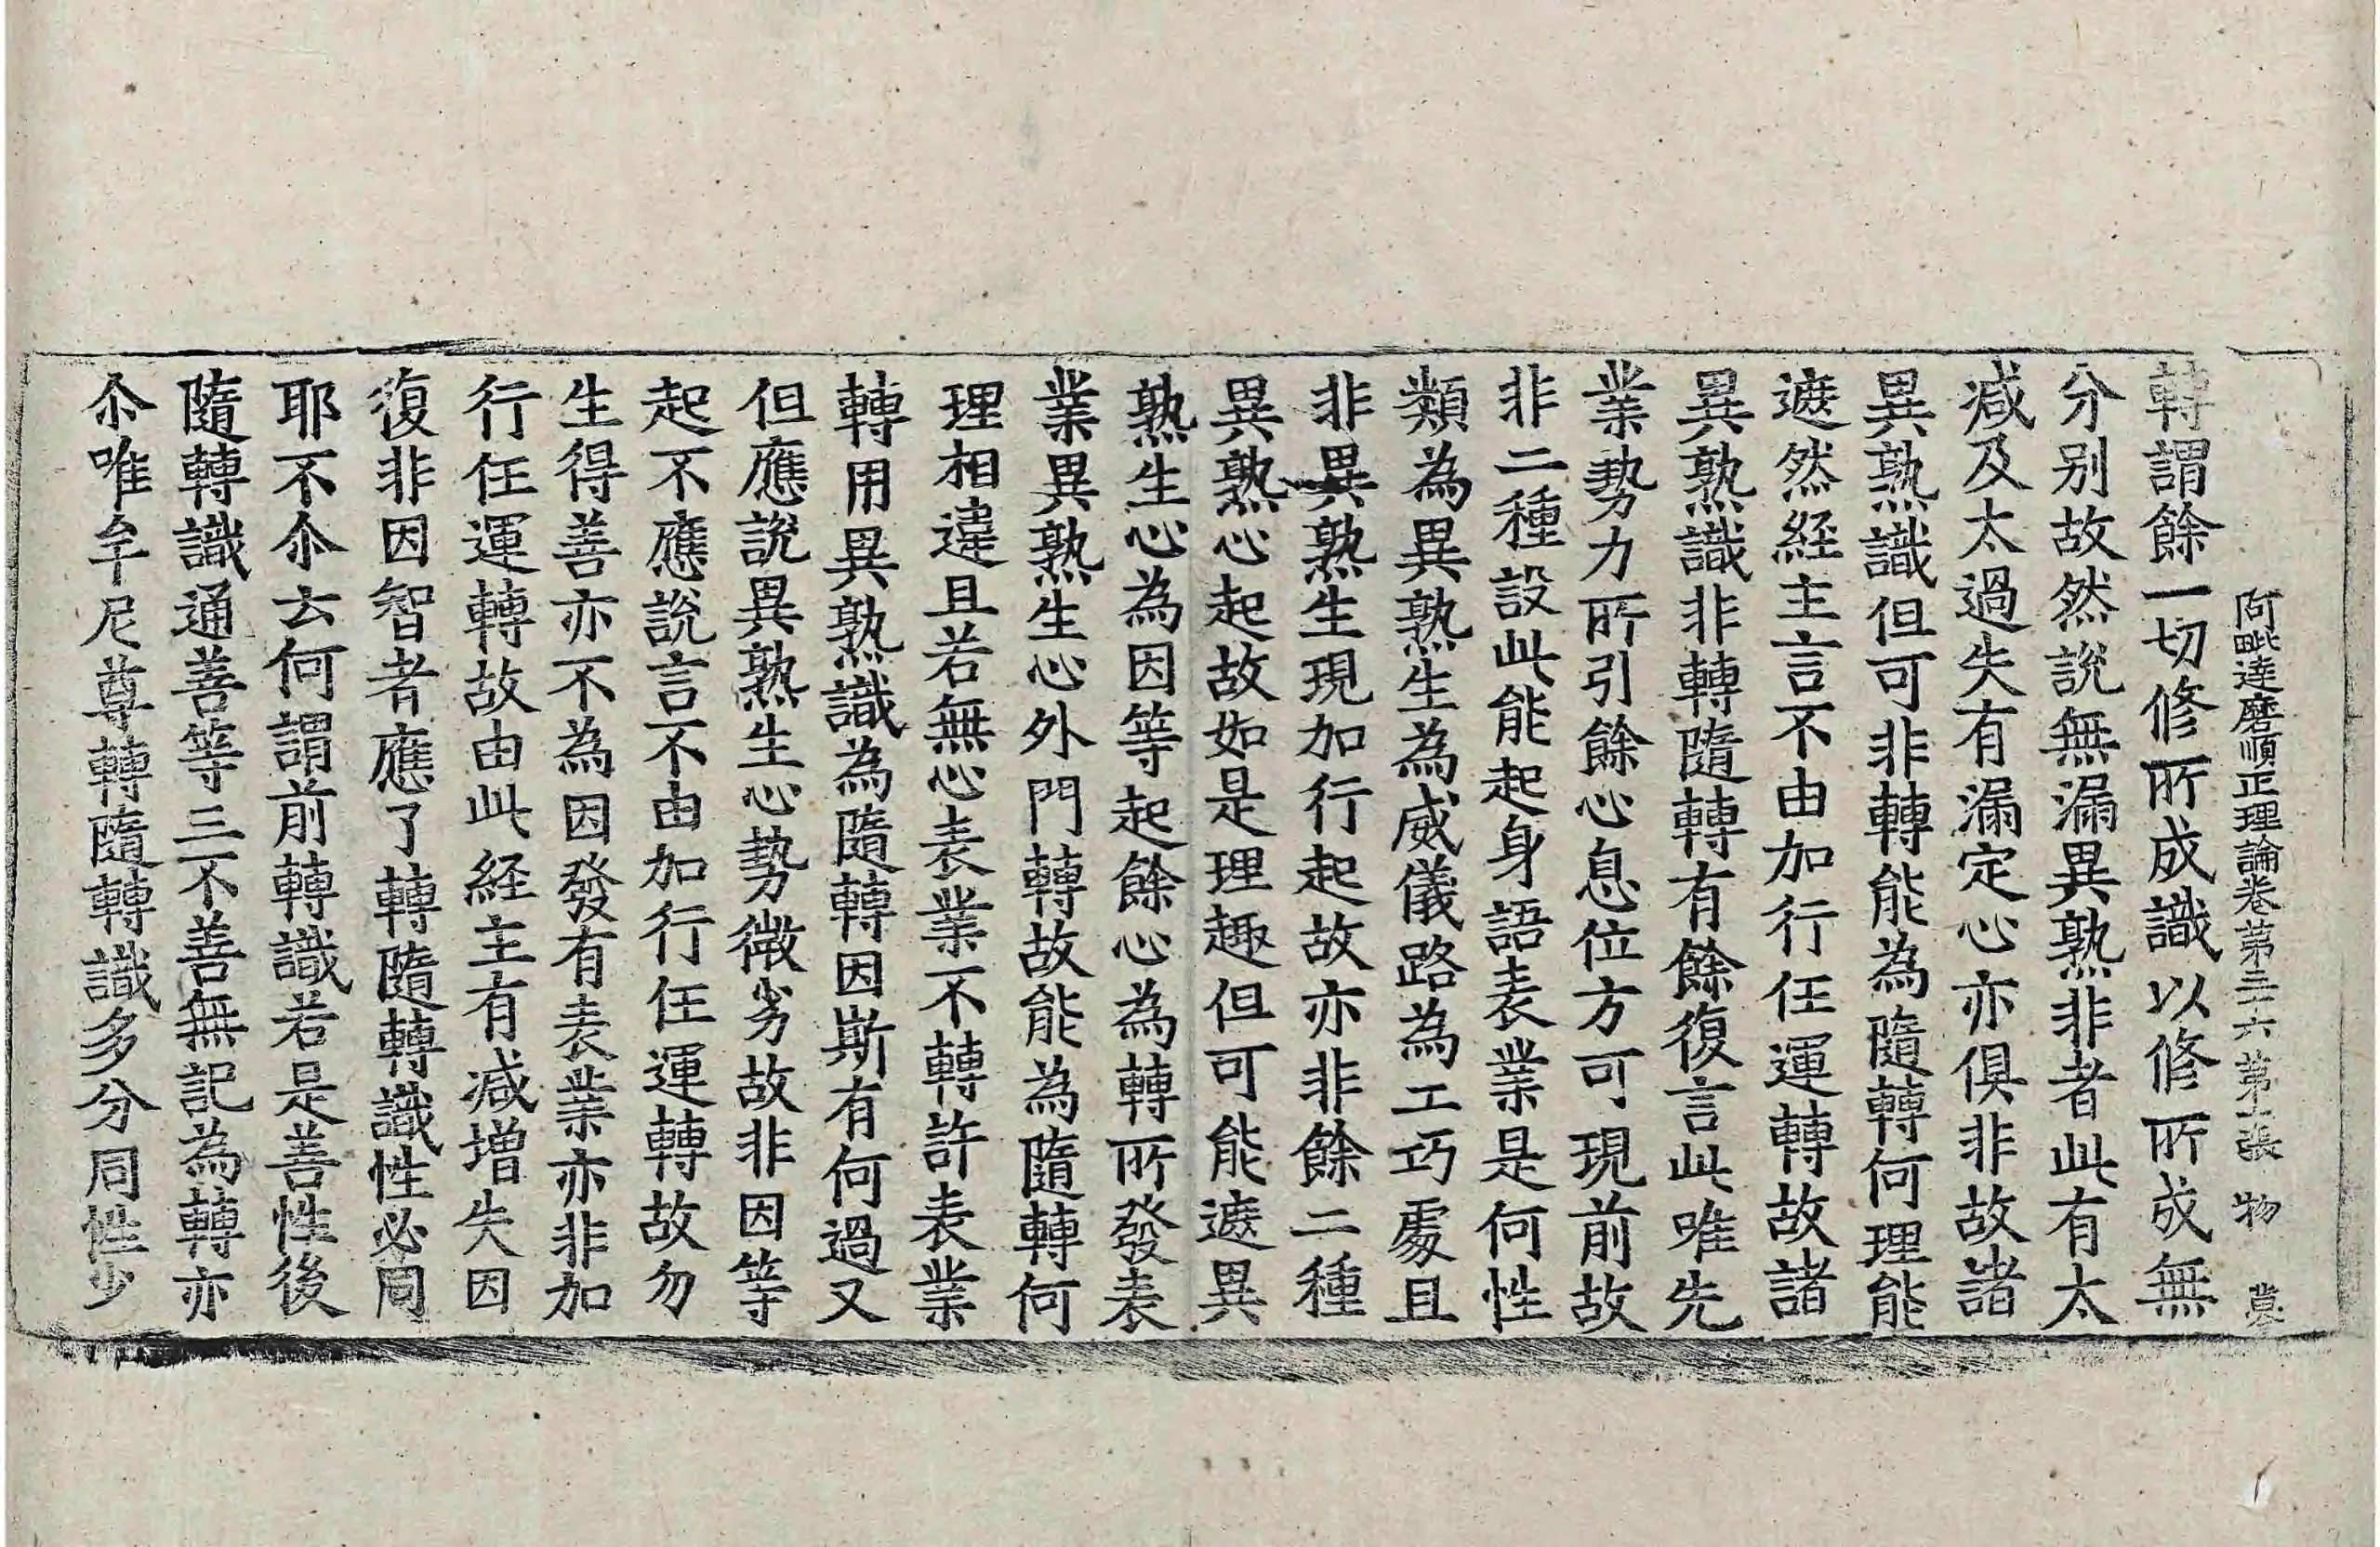 阿毗達磨順正理論卷第三十六 第十張 物
轉謂餘一切修所成識以修所成無
分别故然說無漏異熟非者此有太
减及太過失有漏定心亦俱非故諸
異熟識但可非轉能為隨轉何理能
遮然経主言不由加行任運轉故諸
異熟識非轉隨轉有餘復言此唯先
業勢力所引餘心息位方可現前故
非二種設此能起身語表業是何性
類為異熟生為威儀路為工巧處且
非異熟生現加行起故亦非餘二種
異熟心起故如是理趣但可能遮異
熟生心為因等起餘心為轉所發表
業異熟生心外門轉故能為隨轉何
理相違且若無心表業不轉許表業
轉用異熟識為隨轉因斯有何過又
但應說異熟生心勢微劣故非因等
起不應說言不由加行任運轉故勿
生得善亦不為因發有表業亦非加
行任運轉故由此経主有减增失因
復非因智者應了轉隨轉識性必同
耶不尒云何謂前轉識若是善性後
隨轉識通善等三不善無記為轉亦
尒唯牟尼尊轉隨轉識多分同性少